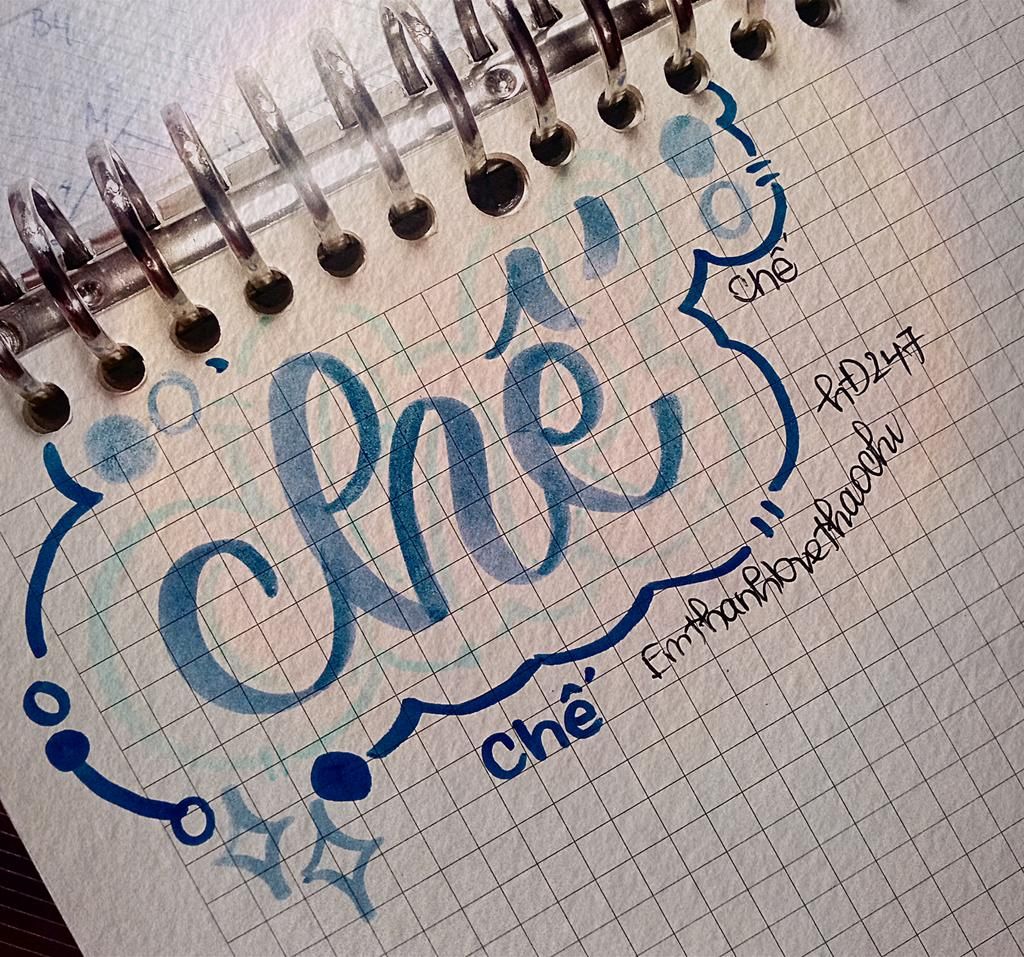 B4
M
chế
chế
hD247
Emthanhilovethaochi
chế